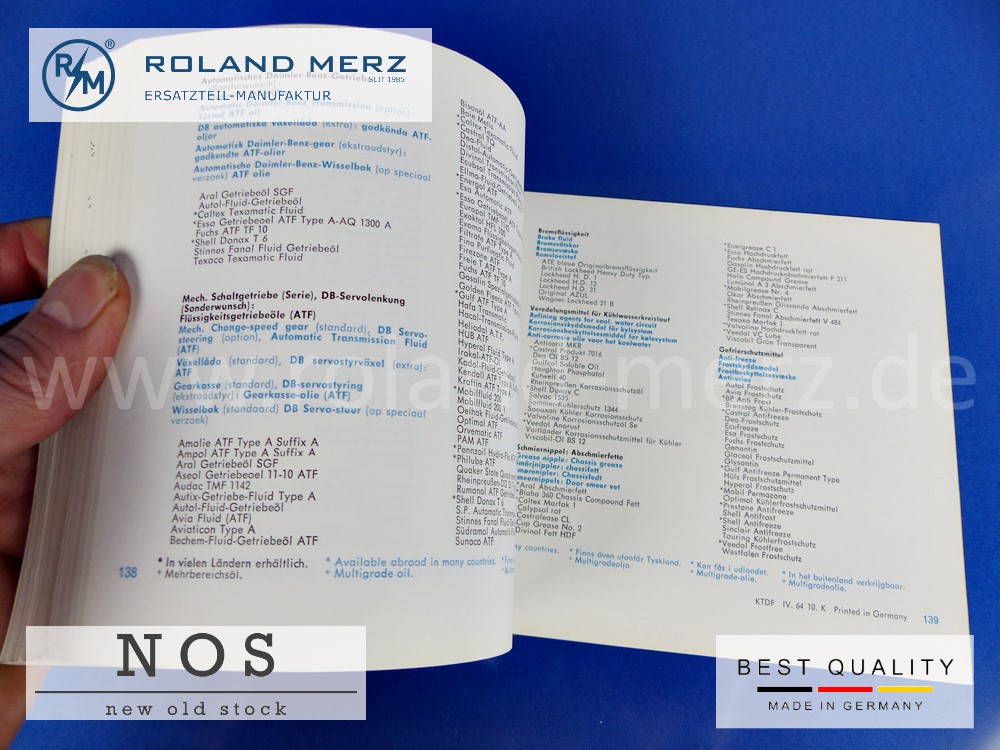 ROLAND MERZ
SEIT 1985
ERSATZTEIL-MANUFAKTUR
R/M ®
Automatisches Daimler-Benz-Getriebe
(Sonderwunsch):
Automatic Daimler-Benz Transmission (option):
Tested ATF oil
DB automatiska växellåda (extra): godkända ATF-
oljor
Automatisk Daimler-Benz-gear (ekstraudstyr):
godkendte ATF-olier
Automatische Daimler-Benz-Wisselbak (op speciaal
verzoek) ATF olie
Aral Getriebeöl SGF
Autol-Fluid-Getriebeöl
*Caltex Texamatic Fluid
*Esso Getriebeoel ATF Type A-AQ 1300 A
Fuchs ATF TF 10
*Shell Donax T 6
Stinnes Fanal Fluid Getriebeöl
Texaco Texamatic Fluid
Mech. Schaltgetriebe (Serie), DB-Servolenkung
(Sonderwunsch):
Flüssigkeitsgetriebeöle (ATF)
Mech. Change-speed gear (standard), DB Servo-
steering (option), Automatic Transmission Fluid
(ATF)
Växellåda (standard), DB servostyräxel (extra):
ATF
Gearkasse (standard), DB-servostyring
(ekstraudstyr): Gearkasse-olie (ATF)
Wisselbak (standaard) DB Servo-stuur (op speciaal
verzoek)
Amalie ATF Type A Suffix A
Ampol ATF Type A Suffix A
Aral Getriebeöl SGF
Aseol Getriebeoel 11-10 ATF
Audac TMF 1142
Autix-Getriebe-Fluid Type A
Autol-Fluid-Getriebeöl
Avia Fluid (ATF)
Aviaticon Type A
Bechem-Fluid-Getriebeöl ATF
Bisonöl ATF-AA
Boie Metis
*Caltex Texamatic Fluid
*Castrol TQ
Dea-Fluid
Distol-Automatic-Getr
Divinol Transmission
Ecubsol Transmission
Ellmo-Fluid-Getriebeöl
*Energol ATF
Esa Automatic ATF
*Esso Getriebeoel ATF
Europol TMF 1142
Exaktol HFL 100
Exama Fluid
Filtrate ATF
Fina Purfimatic
Finzene Fluid
Freie T ATF Type A
Fuchs ATF TF 10
Gasolin Spezialgetr
Golden Fleece ATF
*Gulf ATF Type A
Hafa Transmission
Hacol-Transmatic
Heliodol A.T.F.
HUB ATF
Hyperol Fluid Type A
Irokal-ATF-Öl
Kendall ATF Type A
Kraftin ATF Type A
*Mobilfluid 200
*Mobilfluid 200
Oelhok Fluid-Getriebe
Optimol ATF
Orvematic ATF
PAM ATF
*Pennzoil Hydra-Flo ATF
*Philube ATF
Quaker State Quadromatic
Rheinpreußen-DO
Rumanol ATF Getriebe
*Shell Donax T 6
S.P. Automatic Transm
Stinnes Fanal Fluid Getr
Südramol Automatic
Sunoco ATF
* In vielen Ländern erhältlich.
+ Mehrbereichsöl.
* Available abroad in many countries.
+ Multigrade oil.
138
Bremsflüssigkeit
Brake fluid
Bromsvätskor
Bremsevæske
Remvloeistof
ATE blaue Originalbremsflüssigkeit
British Lockheed Heavy Duty Typ
Lockheed H. D. 1
Lockheed H.D. 12
Lockheed H.D. 31
Original AZUL
Wagner Lockheed 21 B
Veredelungsmittel für Kühlwasserkreislauf
Refining agents for cool. water circuit
Korrosionsskyddsmedel för kylsystem
Korrosionsbeskyttelsesmiddel for kølesystem
Anti-corrosie olie voor het koelwater
Anticorit MKR
*Castrol Produkt 7016
Dea Öl BS 12
Gulfcol Soluble Oil
Houghton Phosphatol
Kutwell 40
Rheinpreußen Korrosionsschutzöl
*Shell Donax C
Solvac 1535
Sommer-Kühlerschutz 1344
Sonuxon Kühler Korrosionsschutz
*Valvoline Korrosionsschutzöl Se
*Veedol Anorust
Voitländer Korrosionsschutzmittel für Kühler
Viscobil-Öl BS 12
Schmiernippel: Abschmierfette
Grease nipple: Chassis grease
Smörjnipplar: chassifett
Smørenipler: Chassisfedt
Smeernippels: Door smeer vet
*Aral Abschmierfett
*Blaha 360 Chassis Compound Fett
*Caltex Marfak 1
Calypsol rot
Castrolease CL
Cup Grease No. 2
Divinol Fett HDF
*Energrease C 1
*Esso Hochdruckfett
Fuchs Abschmierfett
Gasolin Hochdruckfett rot
GE-ES Hochdruckabschmierfett F 211
Hafa Compound Grease
Luminol A 3 Abschmierfett
*Mobilgrease Nr. 4
Okar Abschmierfett
Rheinpreußen Glissando Abschmierfett
*Shell Retinax C
Stinnes Fanal Abschmierfett V 484
Texaka Marfak 1
*Valvoline Hochdruckfett rot
*Veedol VC Lube
Viscobil Grün Transparent
Gefrierschutzmittel
Anti-freeze
Frostskyddsmedel
Frostbeskyttelsesvæske
Anti-vries
Autol Frostschutz
Avia Frostschutz
*BP Anti Frost
Brenntag Kühler-Frostschutz
Castrol Antifreeze
Dea-Frostschutz
Ecufreeze
Esa Frostschutz
Fuchs Frostschutz
Genantin
Glaceol Frostschutzmittel
Glysantin
*Gulf Antifreeze Permanent Type
Hüls Frostschutzmittel
Hyperol Frostschutz
*Mobil Permazone
Optimol Kühlerfrostschutz
*Prestone Antifreeze
Shell Antifrost
*Shell Antifreeze
Sinclair Antifreeze
Touring Kühlerfrostschutz
*Veedol Frostfree
Westfalen Frostschutz
ny countries.
* Finns även utanför Tyskland.
+ Multigradeolja.
* Kan fås i udlandet.
+ Multigrade-olie.
* In het buitenland verkrijgbaar.
+ Multigrade-olie.
KTDF IV. 64 10. K Printed in Germany
139
www.roland-merz.de
NOS
new old stock
BEST QUALITY
MADE IN GERMANY